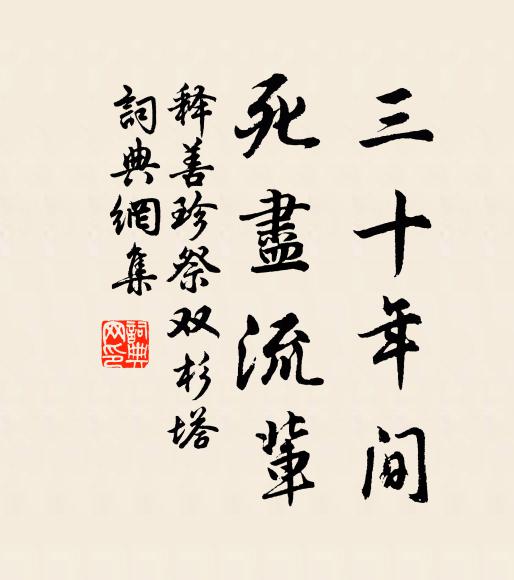 三十年间
死盡流輩
释善珍祭双杉塔
詞典網集
詞典网印